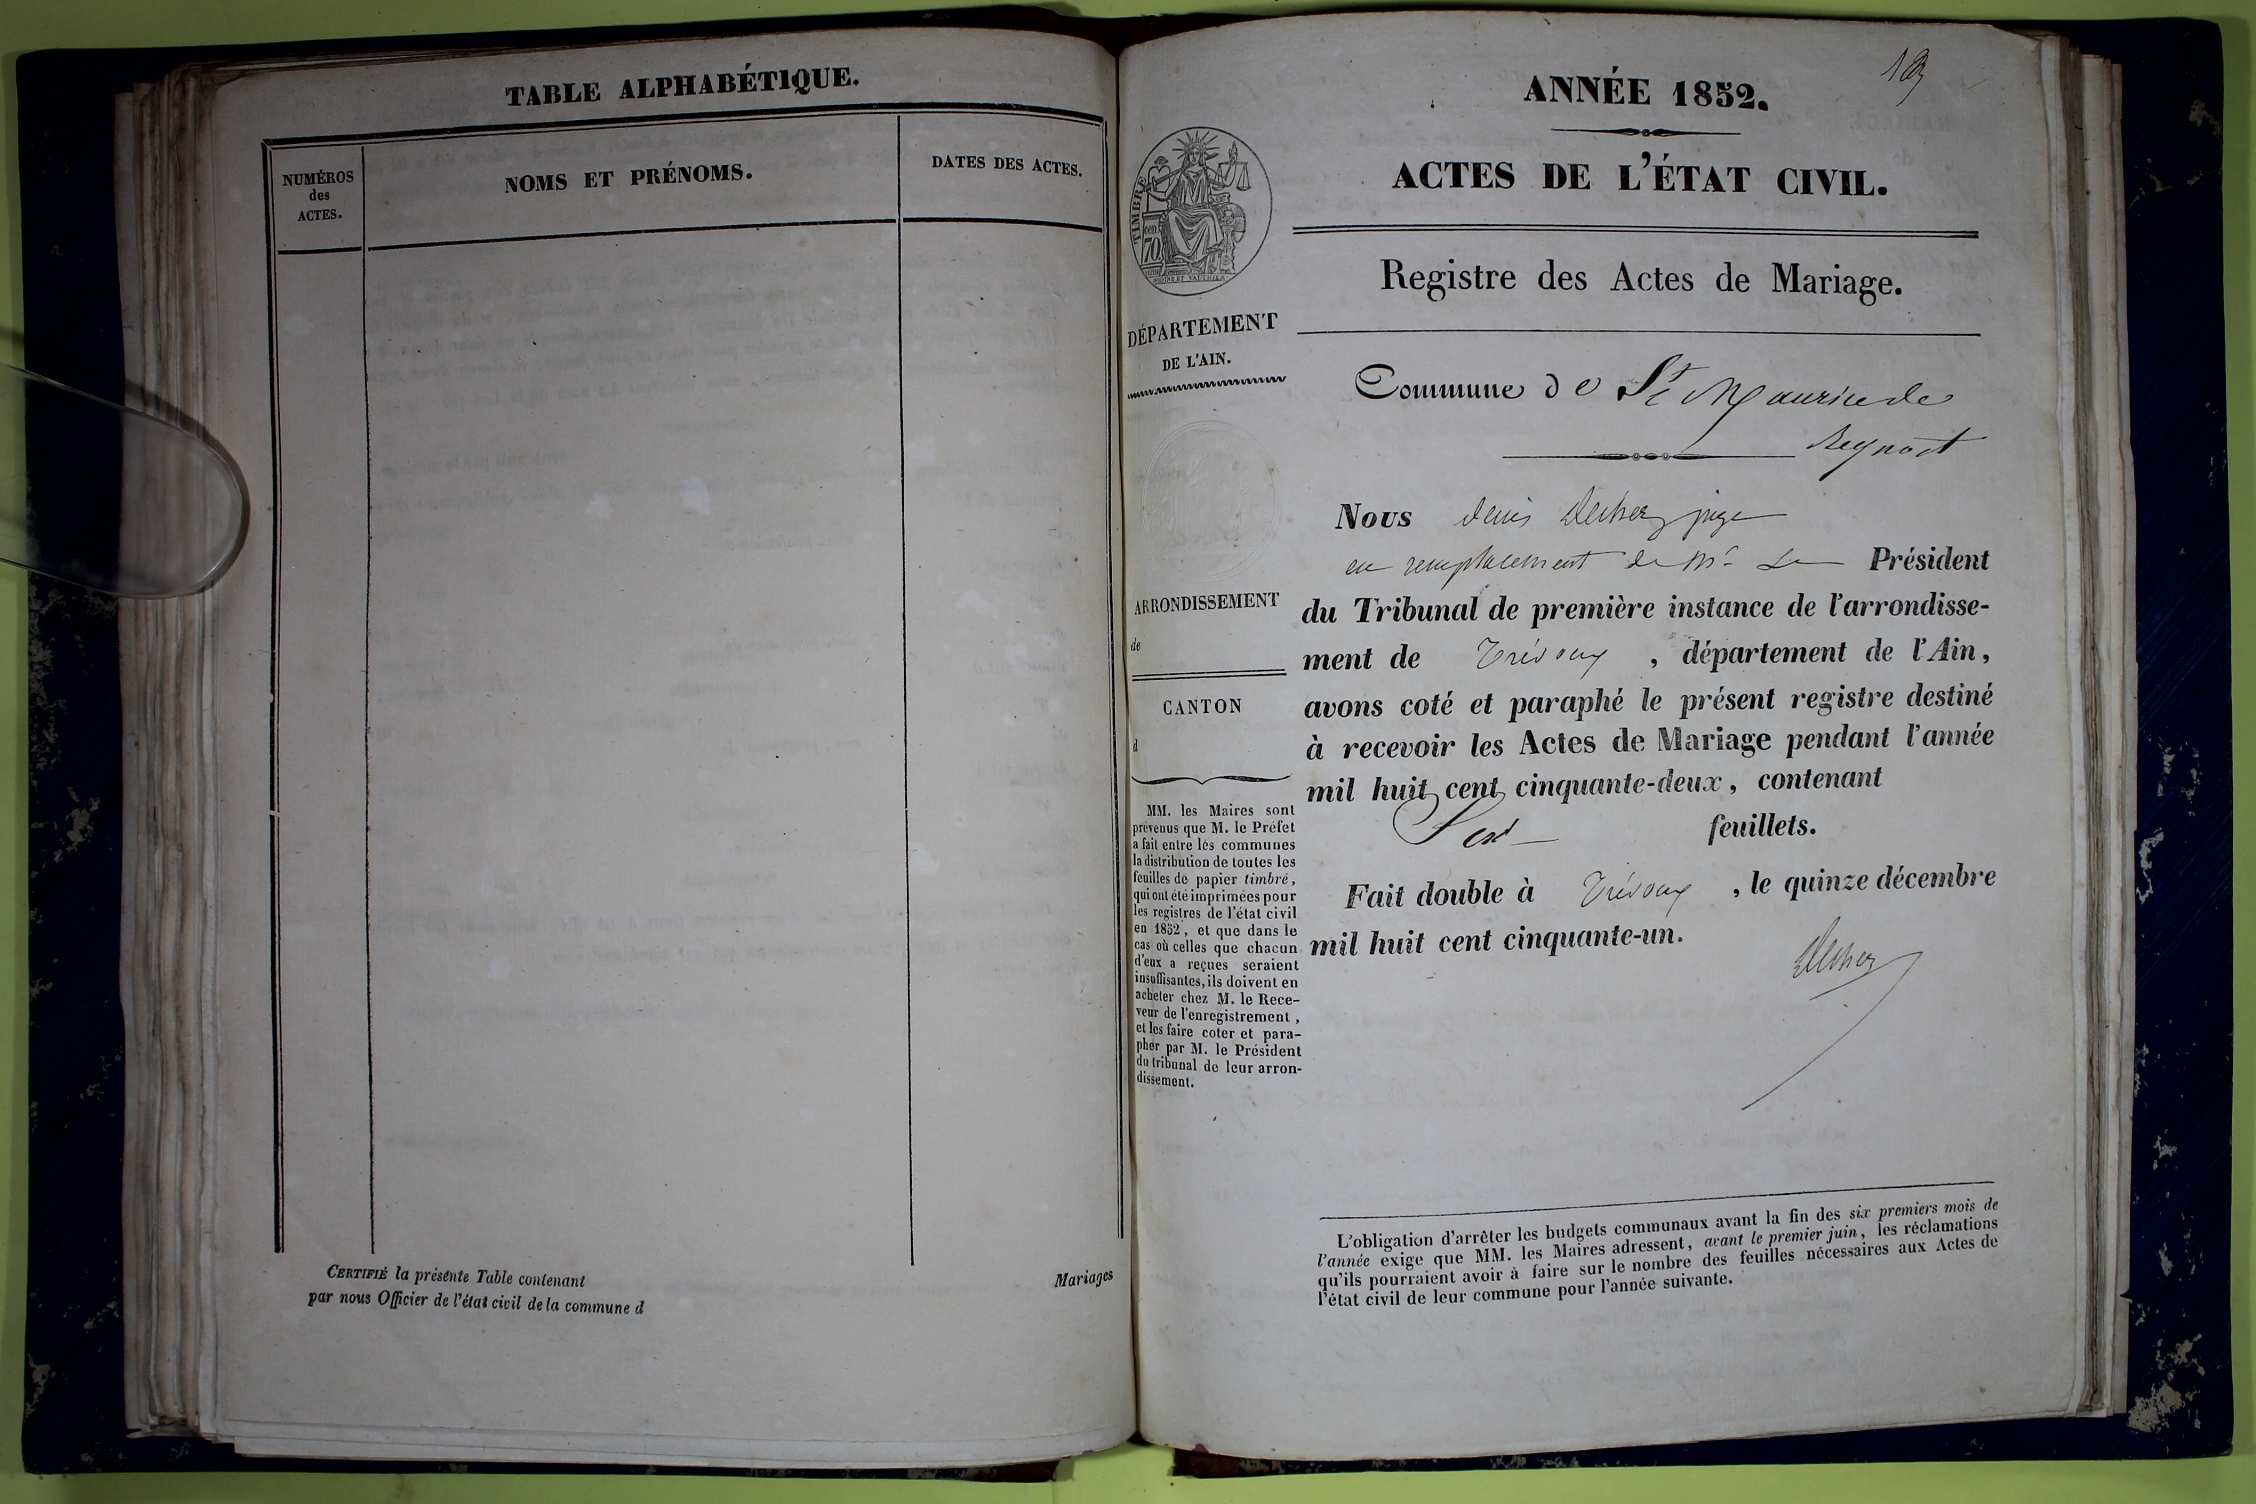 TABLE ALPHABÉTIQUE.
NUMÉROS
des
ACTES.
NOMS ET PRÉNOMS.
DATES DES ACTES.
CERTIFIÉ la présente Table contenant
Mariages
par nous Officier de l'état civil de la commune d
ANNÉE 1852.
ACTES DE L'ÉTAT CIVIL.
Registre des Actes de Mariage.
TIMBRE
cen.
70
DÉPARTEMENT
DE L'AIN.
ARRONDISSEMENT
de
CANTON
d
MM. les Maires sont
prévenus que M. le Préfet
a fait entre les communes
la distribution de toutes les
feuilles de papier timbré,
qui ont été imprimées pour
les registres de l'état civil
en 1852, et que dans le
cas où celles que chacun
d'eux a reçues seraient
insuffisantes, ils doivent en
acheter chez M. le Rece-
veur de l'enregistrement,
et les faire coter et para-
pher par M. le Président
du tribunal de leur arron-
dissement.
Commune de St Maurice de
Beynost
Nous Denis juge
en remplacement de Mr Le Président
du Tribunal de première instance de l'arrondisse-
ment de Trévoux, département de l'Ain,
avons coté et paraphé le présent registre destiné
à recevoir les Actes de Mariage pendant l'année
mil huit cent cinquante-deux, contenant
feuillets.
Fait double à Trévoux, le quinze décembre
mil huit cent cinquante-un.
L'obligation d'arrêter les budgets communaux avant la fin des six premiers mois de
l'année exige que MM. les Maires adressent, avant le premier juin, les réclamations
qu'ils pourraient avoir à faire sur le nombre des feuilles nécessaires aux Actes de
l'état civil de leur commune pour l'année suivante.